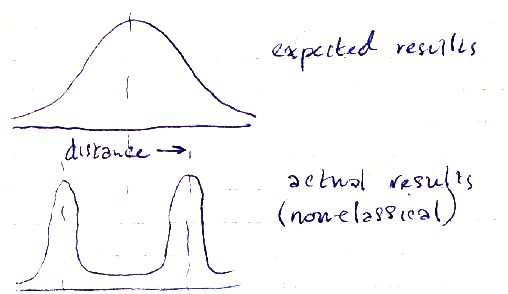 expected results
distance →
actual results
(non-classical)